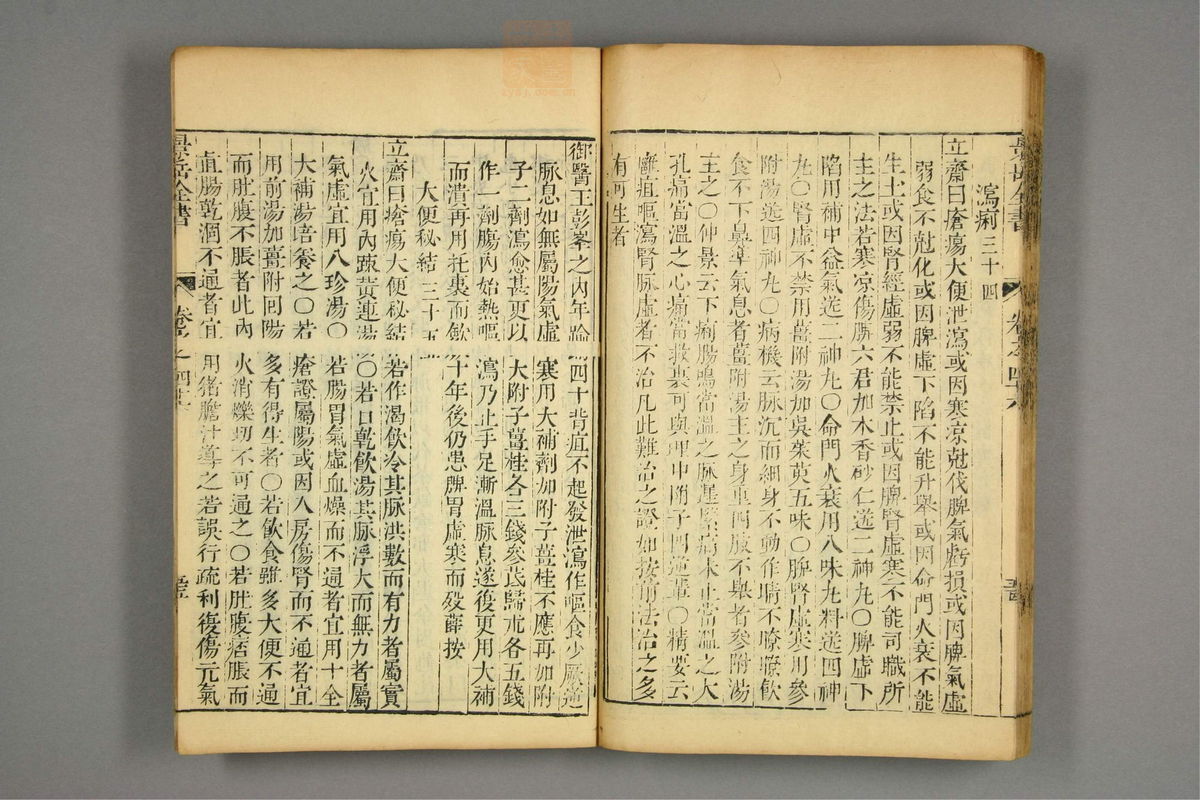 瀉痢三十四
立齋曰瘡瘍大便泄瀉或因寒凉尅伐脾氣虧損或因脾氣虛
弱食不尅化或因脾虛下陷不能升舉或因命門火衰不能
生土或因腎經虛弱不能禁止或因脾腎虛寒不能司職所
主之法若寒凉傷脾六君加木香砂仁送二神丸〇脾虛下
陷用補中益氣送二神丸〇命門火衰用八味丸料送四神
丸〇腎虛不禁用薑附湯加吳茱萸五味〇脾腎虛寒用參
附湯送四神丸〇病機云脉沉而細身不動作睛不瞭瞭飲
食不下鼻準氣息者薑附湯主之身重四肢不舉者參附湯
主之〇仲景云下痢腸鳴當溫之脉遲緊痛未止當溫之大
孔痛當溫之心痛當救裏可與理中附子四逆輩〇精要云
癰疽嘔瀉腎脉虛者不治凡此難治之證如按前法治之多
有可生者
御醫王彭峯之內年踰四十背疽不起發泄瀉作嘔食少厥逆
脉息如無屬陽氣虛寒用大補劑加附子薑桂不應再加附
子二劑瀉愈甚更以大附子薑桂各三錢參芪歸朮各五錢
作一劑腸內始熱嘔瀉乃止手足漸溫脉息遂復更用大補
而潰再用托裏而斂十年後仍患脾胃虛寒而殁薛按
大便秘結三十五
立齋曰瘡瘍大便秘結若作渴飲冷其脉洪數而有力者屬實
火宜用內踈黃連湯〇若口乾飲湯其脉浮大而無力者屬
氣虛宜用八珍湯〇若腸胃氣虛血燥而不通者宜用十全
大補湯培養之〇若瘡證屬陽或因入房傷腎而不通者宜
用前湯加薑附囘陽多有得生者〇若飲食雖多大便不通
而肚腹不脹者此內火消爍切不可通之〇若肚腹痞脹而
直腸乾涸不通者宜用猪膽汁導之若誤行疏利復傷元氣
景岳全書